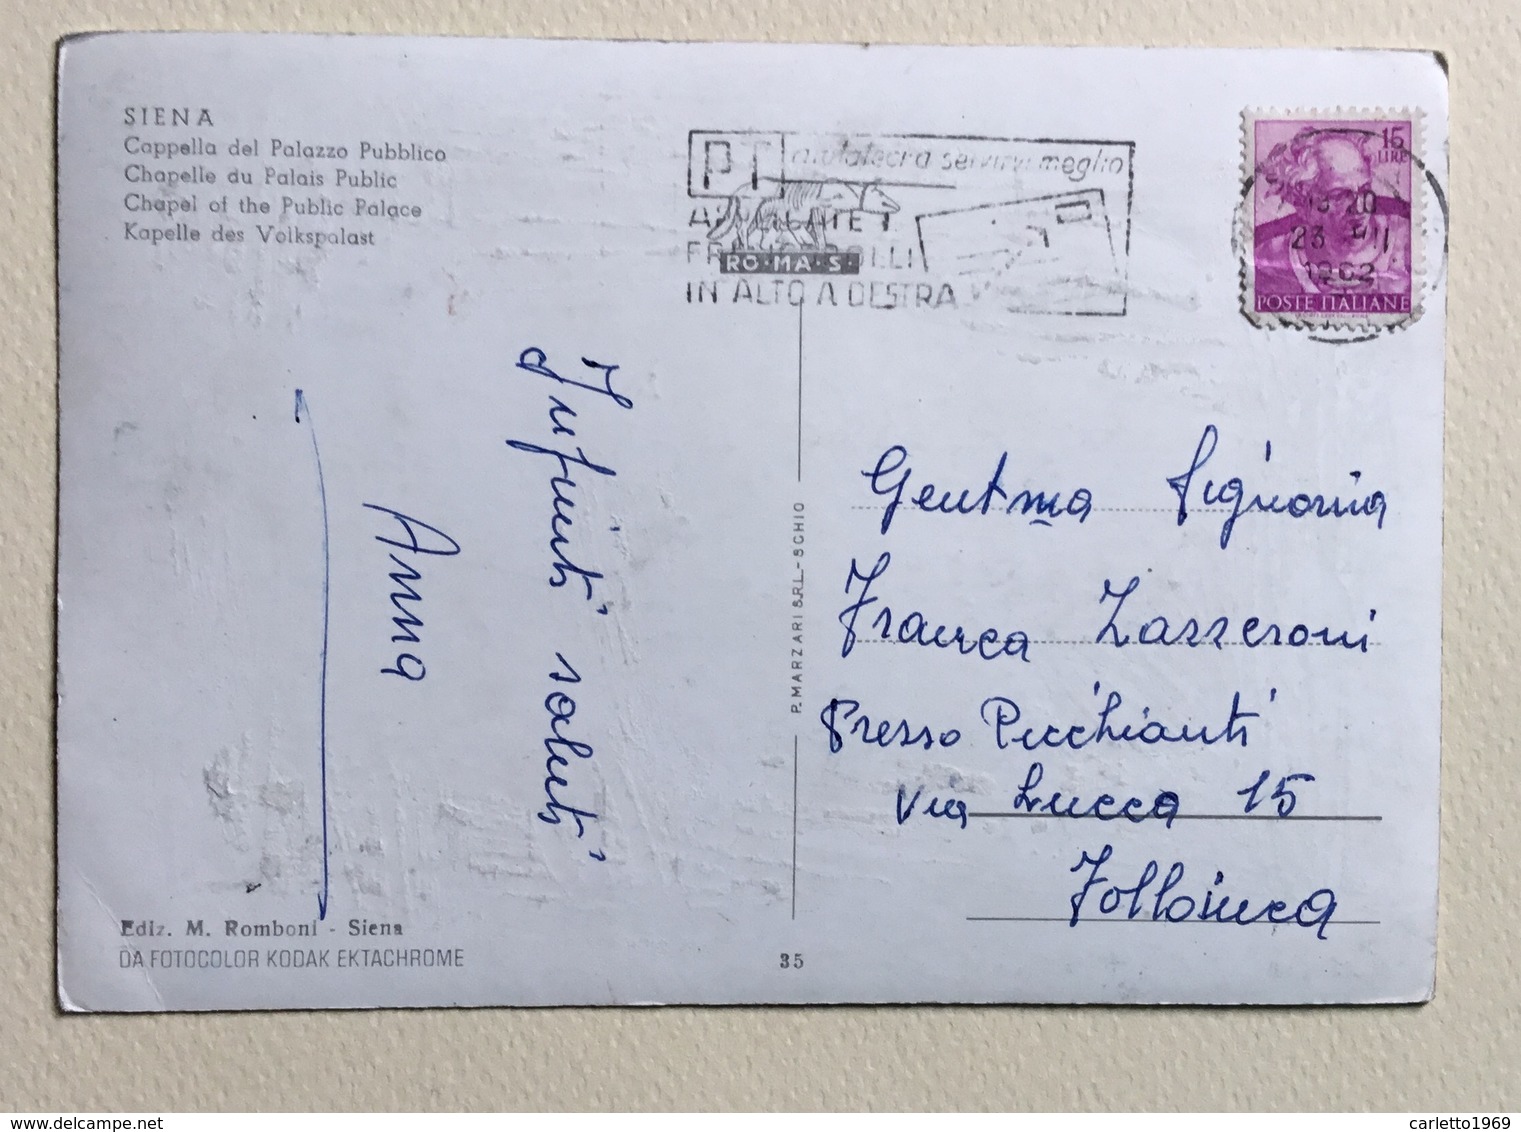 SIENA
Cappella del Palazzo Pubblico
Chapelle du Palais Public
Chapel of the Public Palace
Kapelle des Volkspalast
PT aiutateci a servirvi meglio
IN ALTO A DESTRA
RO·MA·S·
15
LIRE
20
23
1962
POSTE ITALIANE
Infiniti saluti
Anna
P. MARZARI S.R.L. - SCHIO
Gentma Signorina
Franca Zazzeroni
Presso Picchianti
Via Lucca 15
Follonica
Ediz. M. Romboni - Siena
DA FOTOCOLOR KODAK EKTACHROME
35
delcampe.net
carletto1969